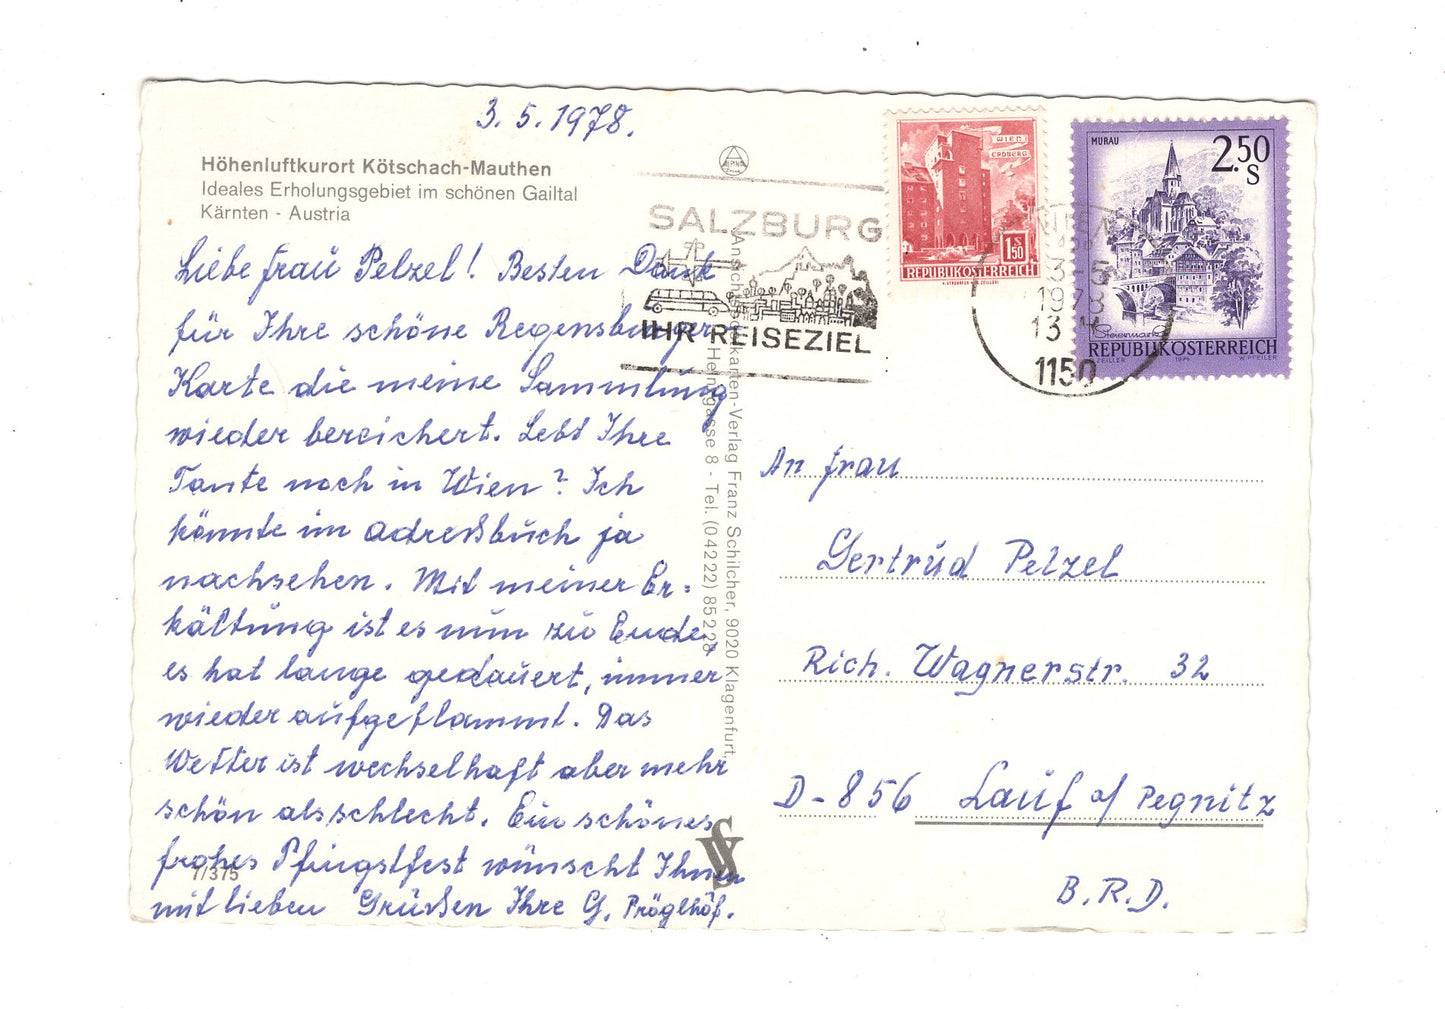 3. 5. 1978.
Höhenluftkurort Kötschach-Mauthen
Ideales Erholungsgebiet im schönen Gailtal
Kärnten - Austria
Liebe Frau Pelzel! Besten Dank
für Ihre schöne Regensburger
Karte die meine Sammlung
wieder bereichert. Lebt Ihre
Tante noch in Wien? Ich
könnte im Adreßbuch ja
nachsehen. Mit meiner Er=
kältung ist es nun zu Ende,
es hat lange gedauert, immer
wieder aufgeflammt. Das
Wetter ist wechselhaft aber mehr
schön als schlecht. Ein schönes
frohes Pfingstfest wünscht Ihnen
mit lieben Grüßen Ihre G. Pröglhöf.
7/375
SALZBURG
IHR REISEZIEL
Ansichtskarten-Verlag Franz Schilcher, 9020 Klagenfurt,
Herrngasse 8 - Tel. (04222) 85228
WIEN
ERDBERG
S
1.50
REPUBLIK ÖSTERREICH
MURAU
2.50
S
Steiermark
REPUBLIK ÖSTERREICH
ZEILER 1974 W. PFEILER
WIEN
-3-5
1978
13
1150
An Frau
Gertrud Pelzel
Rich. Wagnerstr. 32
D-856 Lauf a/ Pegnitz
B.R.D.